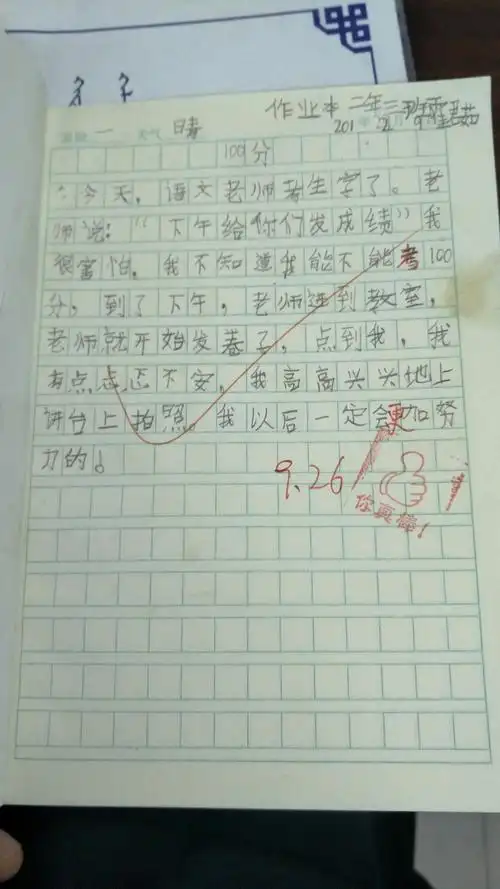 作业本二年三班
星期 一 天气 晴 201 年 月 日
100分
今天，语文老师考生字了。老
师说：“下午给你们发成绩”我
很害怕，我不知道我能不能考100
分，到了下午，老师进到教室，
老师就开始发卷了，点到我，我
有点忐忑不安，我高高兴兴地上
讲台上拍照。我以后一定会更加努
力的！
9.26
你真棒！